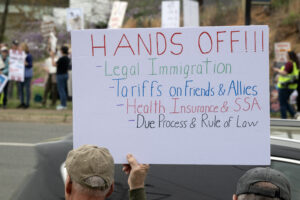 HANDS OFF!!!
-Legal Immigration
-Tariffs on Friends & Allies
-Health Insurance & SSA
-Due Process & Rule of Law